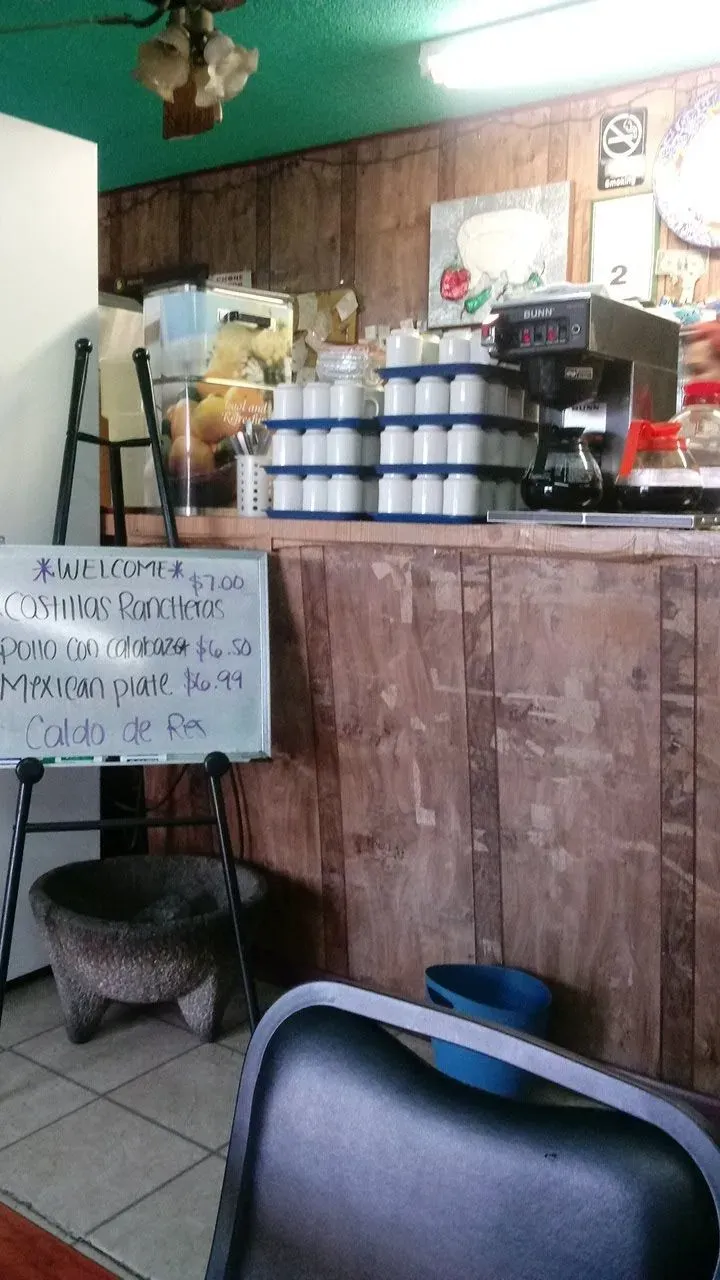 Smoking
2
BUNN
BUNN
Cool and
*WELCOME*
$7.00
Costillas Rancheras
Pollo con calabaza $6.50
Mexican plate $6.99
Caldo de Res